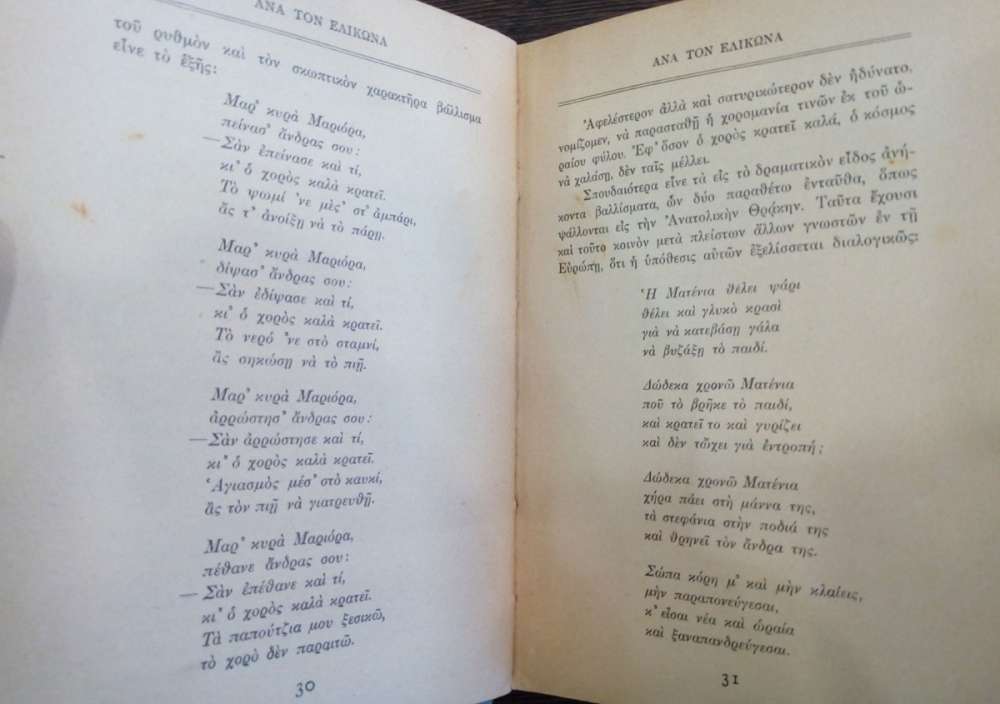 ΑΝΑ ΤΟΝ ΕΛΙΚΩΝΑ
τοῦ ρυθμὸν καὶ τὸν σκωπτικὸν χαρακτῆρα βάλλισμα
εἶνε τὸ ἑξῆς:
Μαρ' κυρὰ Μαριόρα,
πείνασ' ἄνδρας σου:
—Σὰν ἐπείνασε καὶ τί,
κι' ὁ χορὸς καλὰ κρατεῖ.
Τὸ ψωμί 'νε μὲς' στ' ἀμπάρι,
ἂς τ' ἀνοίξῃ νὰ τὸ πάρῃ.
Μαρ' κυρὰ Μαριόρα,
δίψασ' ἄνδρας σου:
—Σὰν ἐδίψασε καὶ τί,
κι' ὁ χορὸς καλὰ κρατεῖ.
Τὸ νερό 'νε στὸ σταμνί,
ἂς σηκώσῃ νὰ τὸ πιῇ.
Μαρ' κυρὰ Μαριόρα,
ἀρρώστησ' ἄνδρας σου:
—Σὰν ἀρρώστησε καὶ τί,
κι' ὁ χορὸς καλὰ κρατεῖ.
Ἁγιασμὸς μέσ' στὸ καυκί,
ἂς τὸν πιῇ νὰ γιατρευθῇ.
Μαρ' κυρὰ Μαριόρα,
πέθανε ἄνδρας σου:
—Σὰν ἐπέθανε καὶ τί,
κι' ὁ χορὸς καλὰ κρατεῖ.
Τὰ παπούτζια μου ξεσικῶ,
τὸ χορὸ δὲν παραιτῶ.
30
ΑΝΑ ΤΟΝ ΕΛΙΚΩΝΑ
Ἀφελέστερον ἀλλὰ καὶ σατυρικώτερον δὲν ἠδύνατο,
νομίζομεν, νὰ παρασταθῇ ἡ χορομανία τινῶν ἐκ τοῦ ὡ-
ραίου φύλου. Ἐφ' ὅσον ὁ χορὸς κρατεῖ καλά, ὁ κόσμος
νὰ χαλάσῃ, δὲν ταῖς μέλλει.
Σπουδαιότερα εἶνε τὰ εἰς τὸ δραματικὸν εἶδος ἀνή-
κοντα βαλλίσματα, ὧν δύο παραθέτω ἐνταῦθα, ὅπως
ψάλλονται εἰς τὴν Ἀνατολικὴν Θρᾴκην. Ταῦτα ἔχουσι
καὶ τοῦτο κοινὸν μετὰ πλείστων ἄλλων γνωστῶν ἐν τῇ
Εὐρώπῃ, ὅτι ἡ ὑπόθεσις αὐτῶν ἐξελίσσεται διαλογικῶς:
Ἡ Ματένια θέλει ψάρι
θέλει καὶ γλυκὸ κρασὶ
γιὰ νὰ κατεβάσῃ γάλα
νὰ βυζάξῃ τὸ παιδί.
Δώδεκα χρονῶ Ματένια
ποῦ τὸ βρῆκε τὸ παιδί,
καὶ κρατεῖ το καὶ γυρίζει
καὶ δὲν τὤχει γιὰ ἐντροπή;
Δώδεκα χρονῶ Ματένια
χήρα πάει στὴ μάννα της,
τὰ στεφάνια στὴν ποδιά της
καὶ θρηνεῖ τὸν ἄνδρα της.
Σώπα κόρη μ' καὶ μὴν κλαίεις,
μὴν παραπονεύγεσαι,
κ' εἶσαι νέα καὶ ὡραία
καὶ ξαναπανδρεύγεσαι.
31